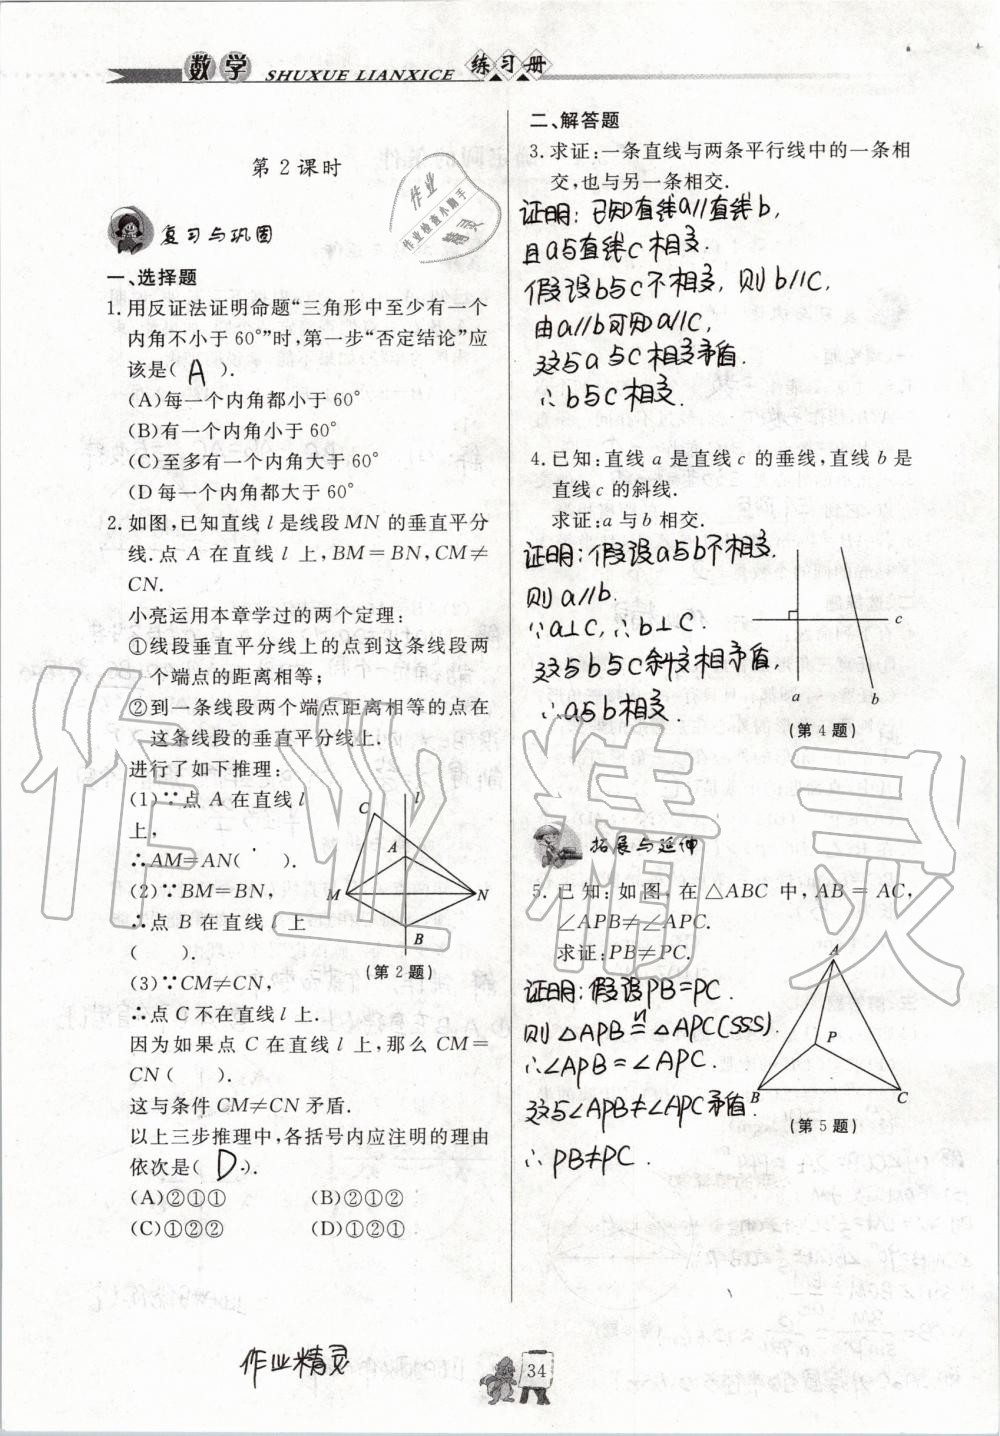 数学
SHUXUE LIANXICE
练习册
第2课时
复习与巩固
一、选择题
1.用反证法证明命题“三角形中至少有一个
内角不小于60°”时,第一步“否定结论”应
该是( A ).
(A)每一个内角都小于60°
(B)有一个内角小于60°
(C)至多有一个内角大于60°
(D每一个内角都大于60°
2.如图,已知直线l是线段MN的垂直平分
线.点A在直线l上,BM=BN,CM≠
CN.
小亮运用本章学过的两个定理:
①线段垂直平分线上的点到这条线段两
个端点的距离相等;
②到一条线段两个端点距离相等的点在
这条线段的垂直平分线上.
进行了如下推理:
(1)∵点A在直线l
上,
∴AM=AN( ).
(2)∵BM=BN,
∴点B在直线l上
( ).
(3)∵CM≠CN,
∴点C不在直线l上.
因为如果点C在直线l上,那么CM=
CN( ).
这与条件CM≠CN矛盾.
以上三步推理中,各括号内应注明的理由
依次是( D ).
(A)②①① (B)②①②
(C)①②② (D)①②①
C
l
A
M
N
B
(第2题)
二、解答题
3.求证:一条直线与两条平行线中的一条相
交,也与另一条相交.
证明:已知直线a//直线b,
且a与直线c相交.
假设b与c不相交,则b//c,
由a//b可知a//c,
这与a与c相交矛盾.
∴b与c相交.
4.已知:直线a是直线c的垂线,直线b是
直线c的斜线.
求证:a与b相交.
证明:假设a与b不相交,
则a//b.
∵a⊥c,∴b⊥c.
这与b与c斜交相矛盾,
∴a与b相交.
c
a
b
(第4题)
拓展与延伸
5.已知:如图,在△ABC中,AB=AC,
∠APB≠∠APC.
求证:PB≠PC.
证明:假设PB=PC.
则△APB≌△APC(SSS).
∴∠APB=∠APC.
这与∠APB≠∠APC矛盾.
∴PB≠PC.
A
P
B
C
(第5题)
作业精灵
34
作业
作业检查小助手
精灵
作业精灵